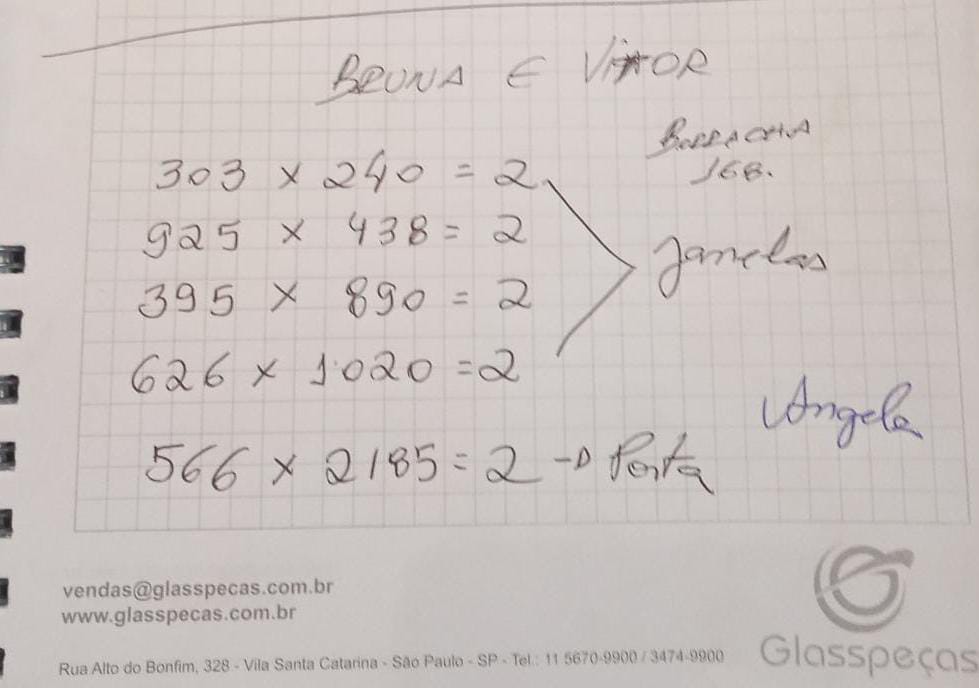 BRUNA E VITOR
BORRACHA
168.
303 x 240 = 2
925 x 438 = 2
janelas
395 x 890 = 2
626 x 1.020 = 2
Angela
566 x 2185 = 2 → Porta
vendas@glasspecas.com.br
www.glasspecas.com.br
Rua Alto do Bonfim, 328 - Vila Santa Catarina - São Paulo - SP - Tel.: 11 5670-9900 / 3474-9900
Glasspeças